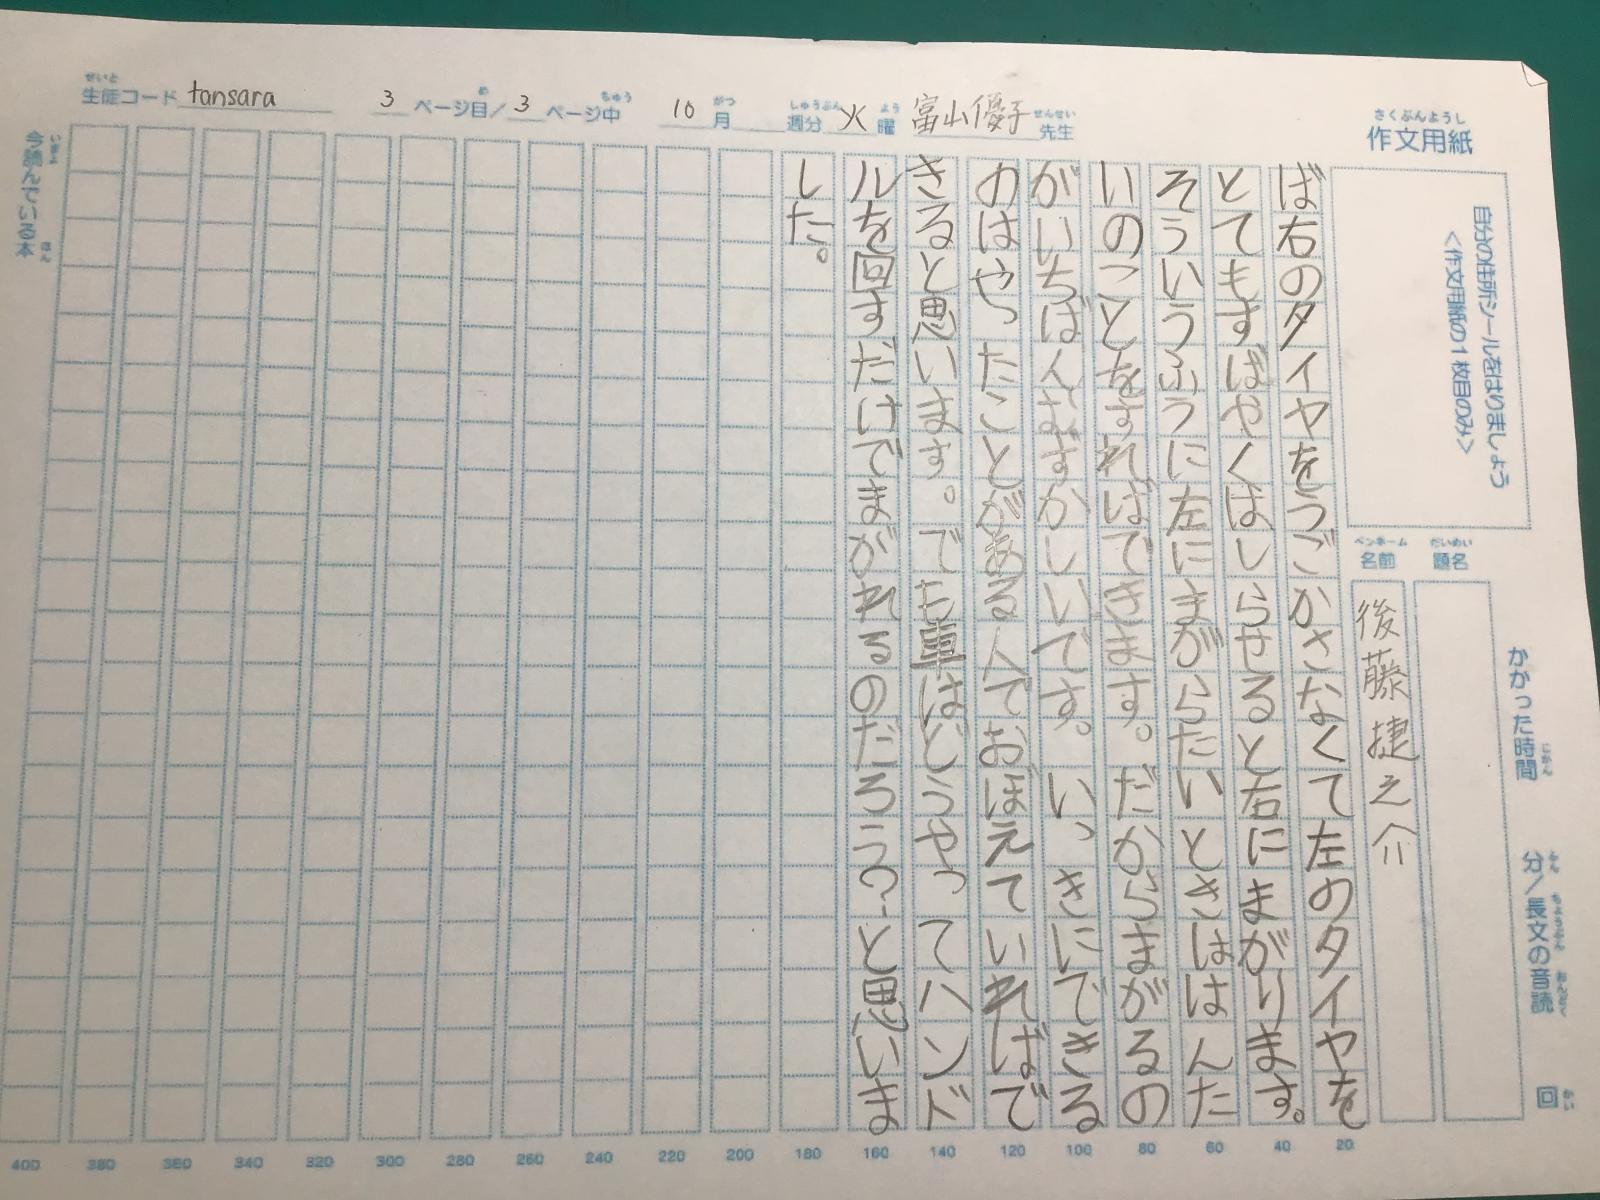 生徒コード tansara 3 ページ目/3 ページ中 10月 週分 火曜 富山優子先生
作文用紙
自分の住所シールをはりましょう
<作文用紙の1枚目のみ>
かかった時間 分/長文の音読 回
題名
名前 後藤捷之介
ば右のタイヤをうごかさなくて左のタイヤを
とてもすばやくはしらせると右にまがります。
そういうふうに左にまがらたいときははんた
いのことをすればできます。だからまがるの
がいちばんおずかしいです。いっきにできる
のはやったことがある人でおぼえていればで
きると思います。でも車はどうやってハンド
ルを回すだけでまがれるのだろう?と思いま
した。
今読んでいる本
20
40
60
80
100
120
140
160
180
200
220
240
260
280
300
320
340
360
380
400